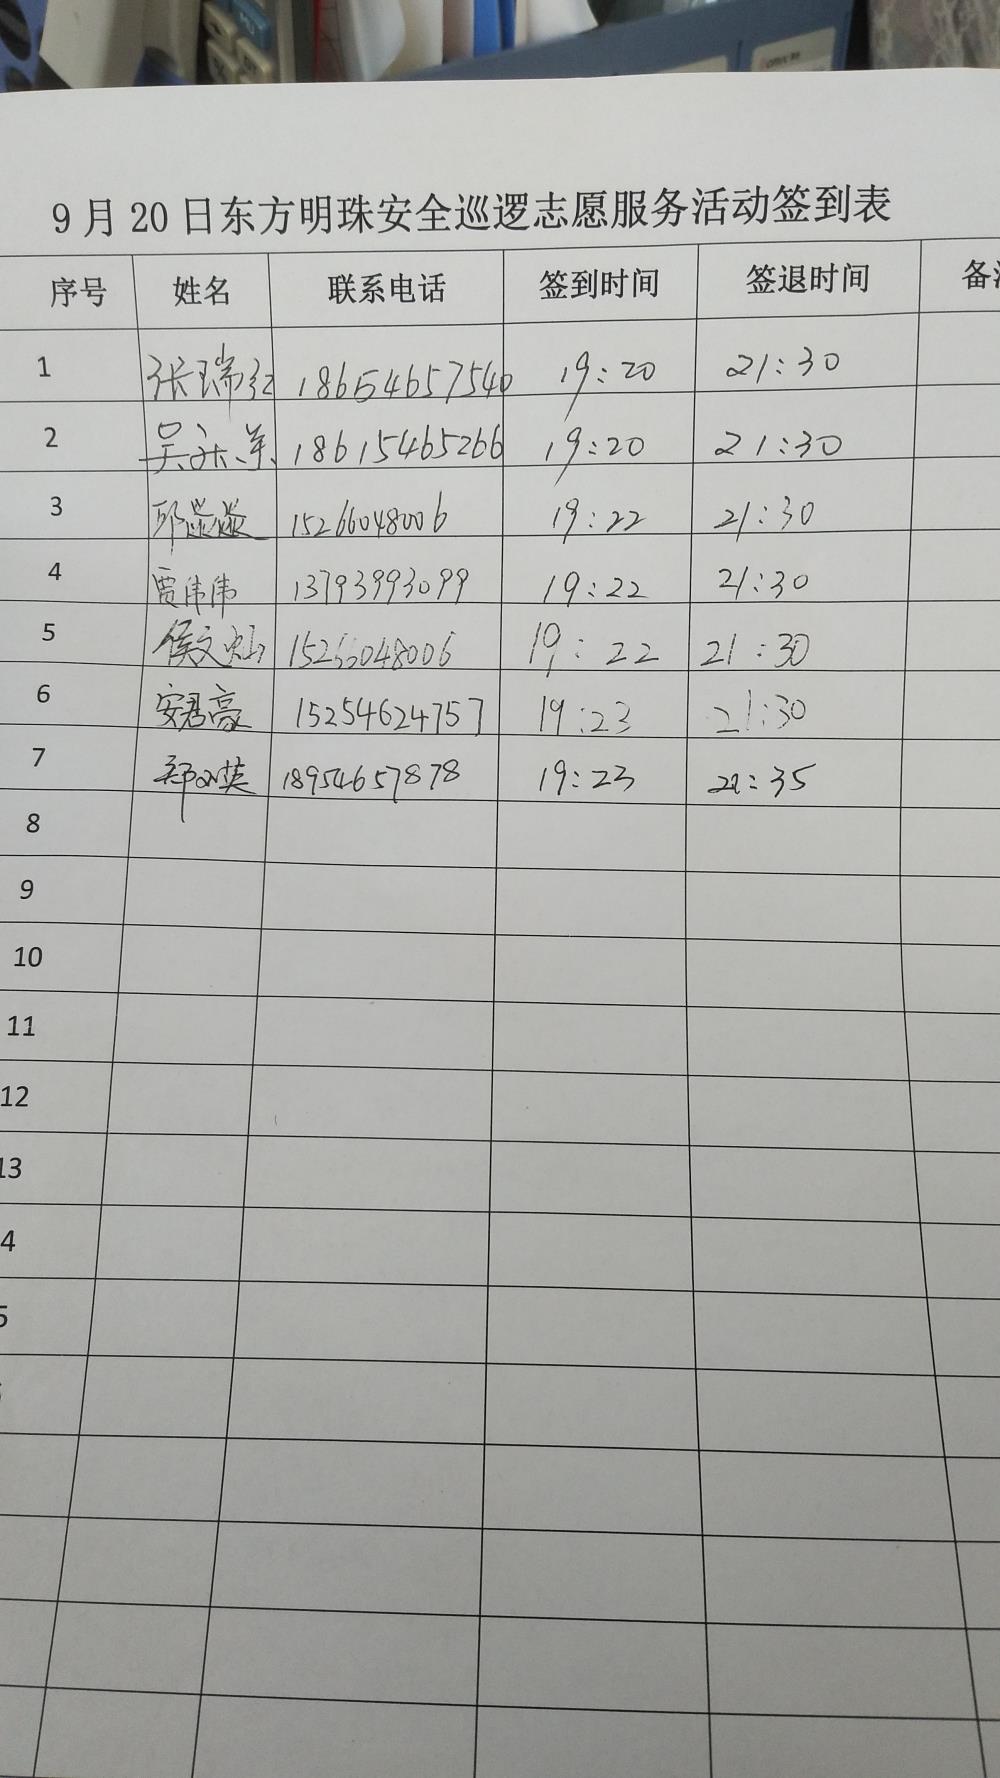 9月20日东方明珠安全巡逻志愿服务活动签到表
序号 姓名 联系电话 签到时间 签退时间 备
1 张瑞红 18654657540 19:20 21:30
2 吴 18615465266 19:20 21:30
3 邱 15266048006 19:22 21:30
4 贾伟伟 13793993099 19:22 21:30
5 侯文灿 15266048006 19:22 21:30
6 安君豪 15254624757 19:23 21:30
7 郑 英 18954657878 19:23 21:35
8
9
10
11
12
13
4
5